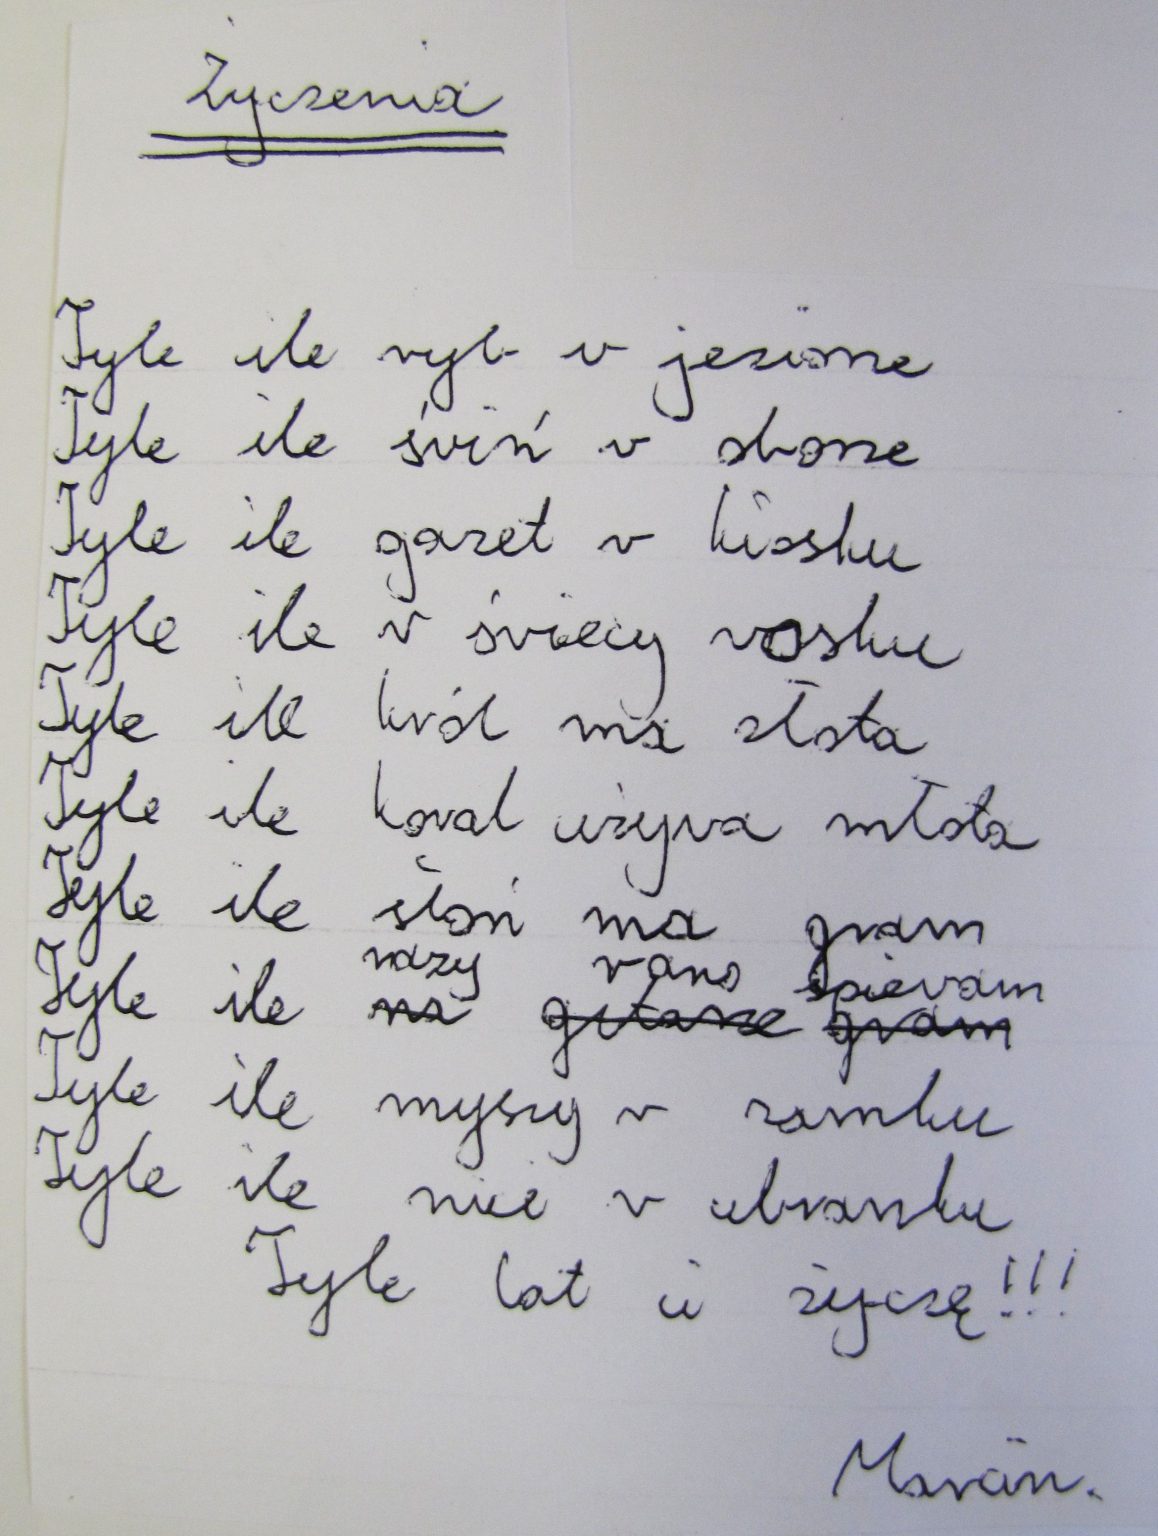 Życzenia
Tyle ile ryb v jeziorze
Tyle ile śviń v oborze
Tyle ile gazet v kiosku
Tyle ile v śviecy vosku
Tyle ile król ma złota
Tyle ile koval używa młota
Tyle ile słoń ma gram
razy rano śpievam
Tyle ile na gitarze gram
Tyle ile myszy v zamku
Tyle ile nici v ubranku
Tyle lat ci życzę!!!
Marcin.